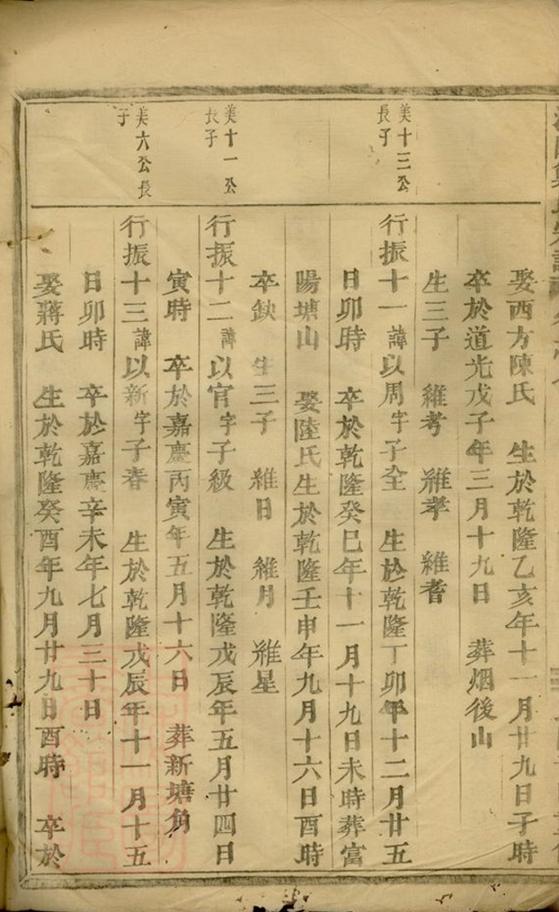 娶西方陳氏　生於乾隆乙亥年十一月廿九日子時
卒於道光戊子年三月十九日　葬烟後山
生三子　維考　維孝　維耆
美十三公
長子
行振十一諱以周字子全　生於乾隆丁卯年十二月廿五
日卯時　卒於乾隆癸巳年十一月十九日未時葬富
陽塘山　娶陸氏生於乾隆壬申年九月十六日酉時
卒缺　生三子　維日　維月　維星
美十一公
長子
行振十二諱以官字子級　生於乾隆戊辰年五月廿四日
寅時　卒於嘉慶丙寅年五月十六日　葬新塘角
美六公長
子
行振十三諱以新字子春　生於乾隆戊辰年十一月十五
日卯時　卒於嘉慶辛未年七月三十日
娶蔣氏　生於乾隆癸酉年九月廿九日酉時　卒於